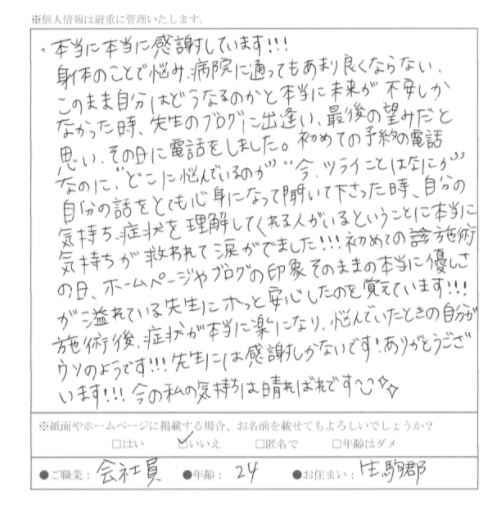 ※個人情報は厳重に管理いたします。
・本当に本当に感謝しています!!!
身体のことで悩み、病院に通ってもあまり良くならない、
このまま自分はどうなるのかと本当に未来が不安しか
なかった時、先生のブログに出逢い、最後の望みだと
思い、その日に電話をしました。初めての予約の電話
なのに、"どこに悩んでいるのか" "今、ツライことはなにか"
自分の話をとても心身になって聞いて下さった時、自分の
気持ち、症状を理解してくれる人がいるということに本当に
気持ちが救われて涙がでました!!!初めての診施術
の日、ホームページやブログの印象そのままの本当に優しさ
が溢れている先生にホっと安心したのを覚えています!!!
施術後、症状が本当に楽になり、悩んでいたときの自分が
ウソのようです!!!先生には感謝しかないです!ありがとうござ
います!!!今の私の気持ちは晴ればれです
※紙面やホームページに掲載する場合、お名前を載せてもよろしいでしょうか?
□はい ☑いいえ □匿名で □年齢はダメ
●ご職業: 会社員 ●年齢: 24 ●お住まい: 生駒郡